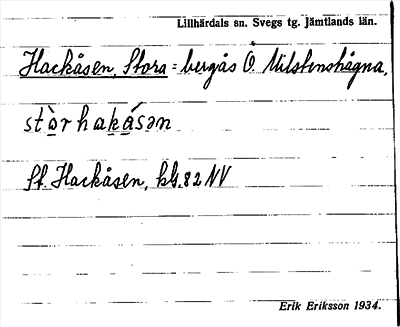 Lillhärdals sn. Svegs tg. Jämtlands län.
Hackåsen, Stora = bergås Ö. Milstenshågna.
stàrhakǻsən
St. Hackåsen, kbl. 82 NV
Erik Eriksson 1934.